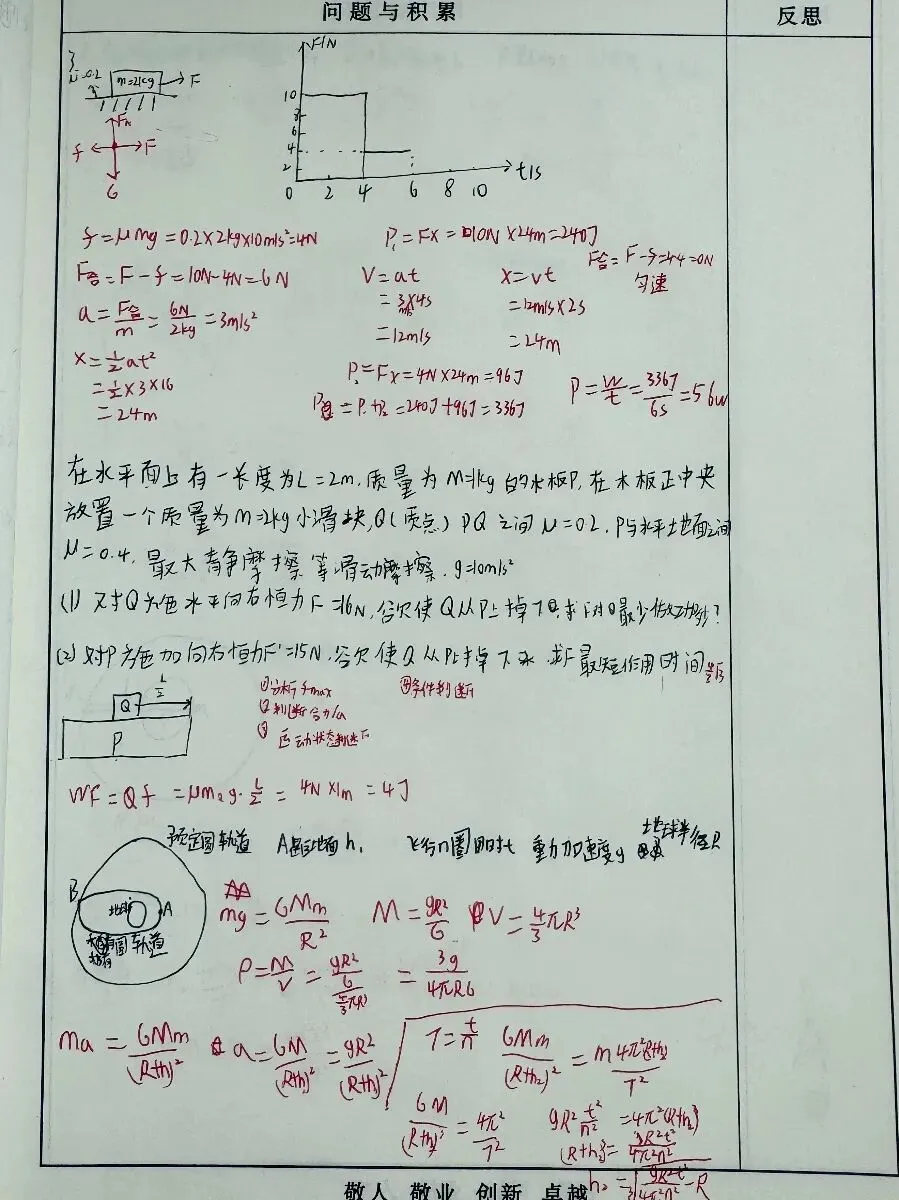 问题与积累
反思
μ=0.2
m=2kg
F
F/N
10
8
6
4
2
0 2 4 6 8 10 t/s
Fn
f F
G
f=μmg=0.2×2kg×10m/s²=4N
P₁=Fx=10N×24m=240J
F合=F-f=4-4=0N
匀速
F合=F-f=10N-4N=6N
V=at
x=vt
=3m/s×4s
=12m/s×2s
a=F合/m=6N/2kg=3m/s²
=12m/s
=24m
x=½at²
=½×3×16
=24m
P₂=Fx=4N×24m=96J
P总=P₁+P₂=240J+96J=336J
P=W/t=336J/6s=56w
在水平面上有一长度为L=2m,质量为M=1kg的木板P,在木板正中央
放置一个质量为m=2kg小滑块,Q(质点)PQ之间μ=0.2,P与水平地面之间
μ=0.4,最大静摩擦等滑动摩擦.g=10m/s²
(1)对Q施水平向右恒力F=16N,欲使Q从P上掉下,求F对Q最少做功
(2)对P施加向右恒力F'=15N,欲使Q从P上掉下来.求F最短作用时间
L/2
Q
P
①分析fmax
②判断合力/a
③运动状态
④条件判断
WF=Qf=μm₂g·L/2=4N×1m=4J
预定圆轨道 A距地面h₁ 飞行n圈用时t 重力加速度g 地球半径R
B
地球
A
圆轨道
mg=GMm/R² M=gR²/G V=4/3πR³
ρ=M/V=(gR²/G)/(4/3πR³)=3g/4πRG
ma=GMm/(R+h₁)² a=GM/(R+h₁)²=gR²/(R+h₁)²
T=t/n GMm/(R+h₂)²=m4π²(R+h₂)/T²
GM/(R+h₂)³=4π²/T²
gR²t²/n²=4π²(R+h₂)³
(R+h₂)³=gR²t²/4π²n²
h₂=³√(gR²t²/4π²n²)-R
敬人 敬业 创新 卓越